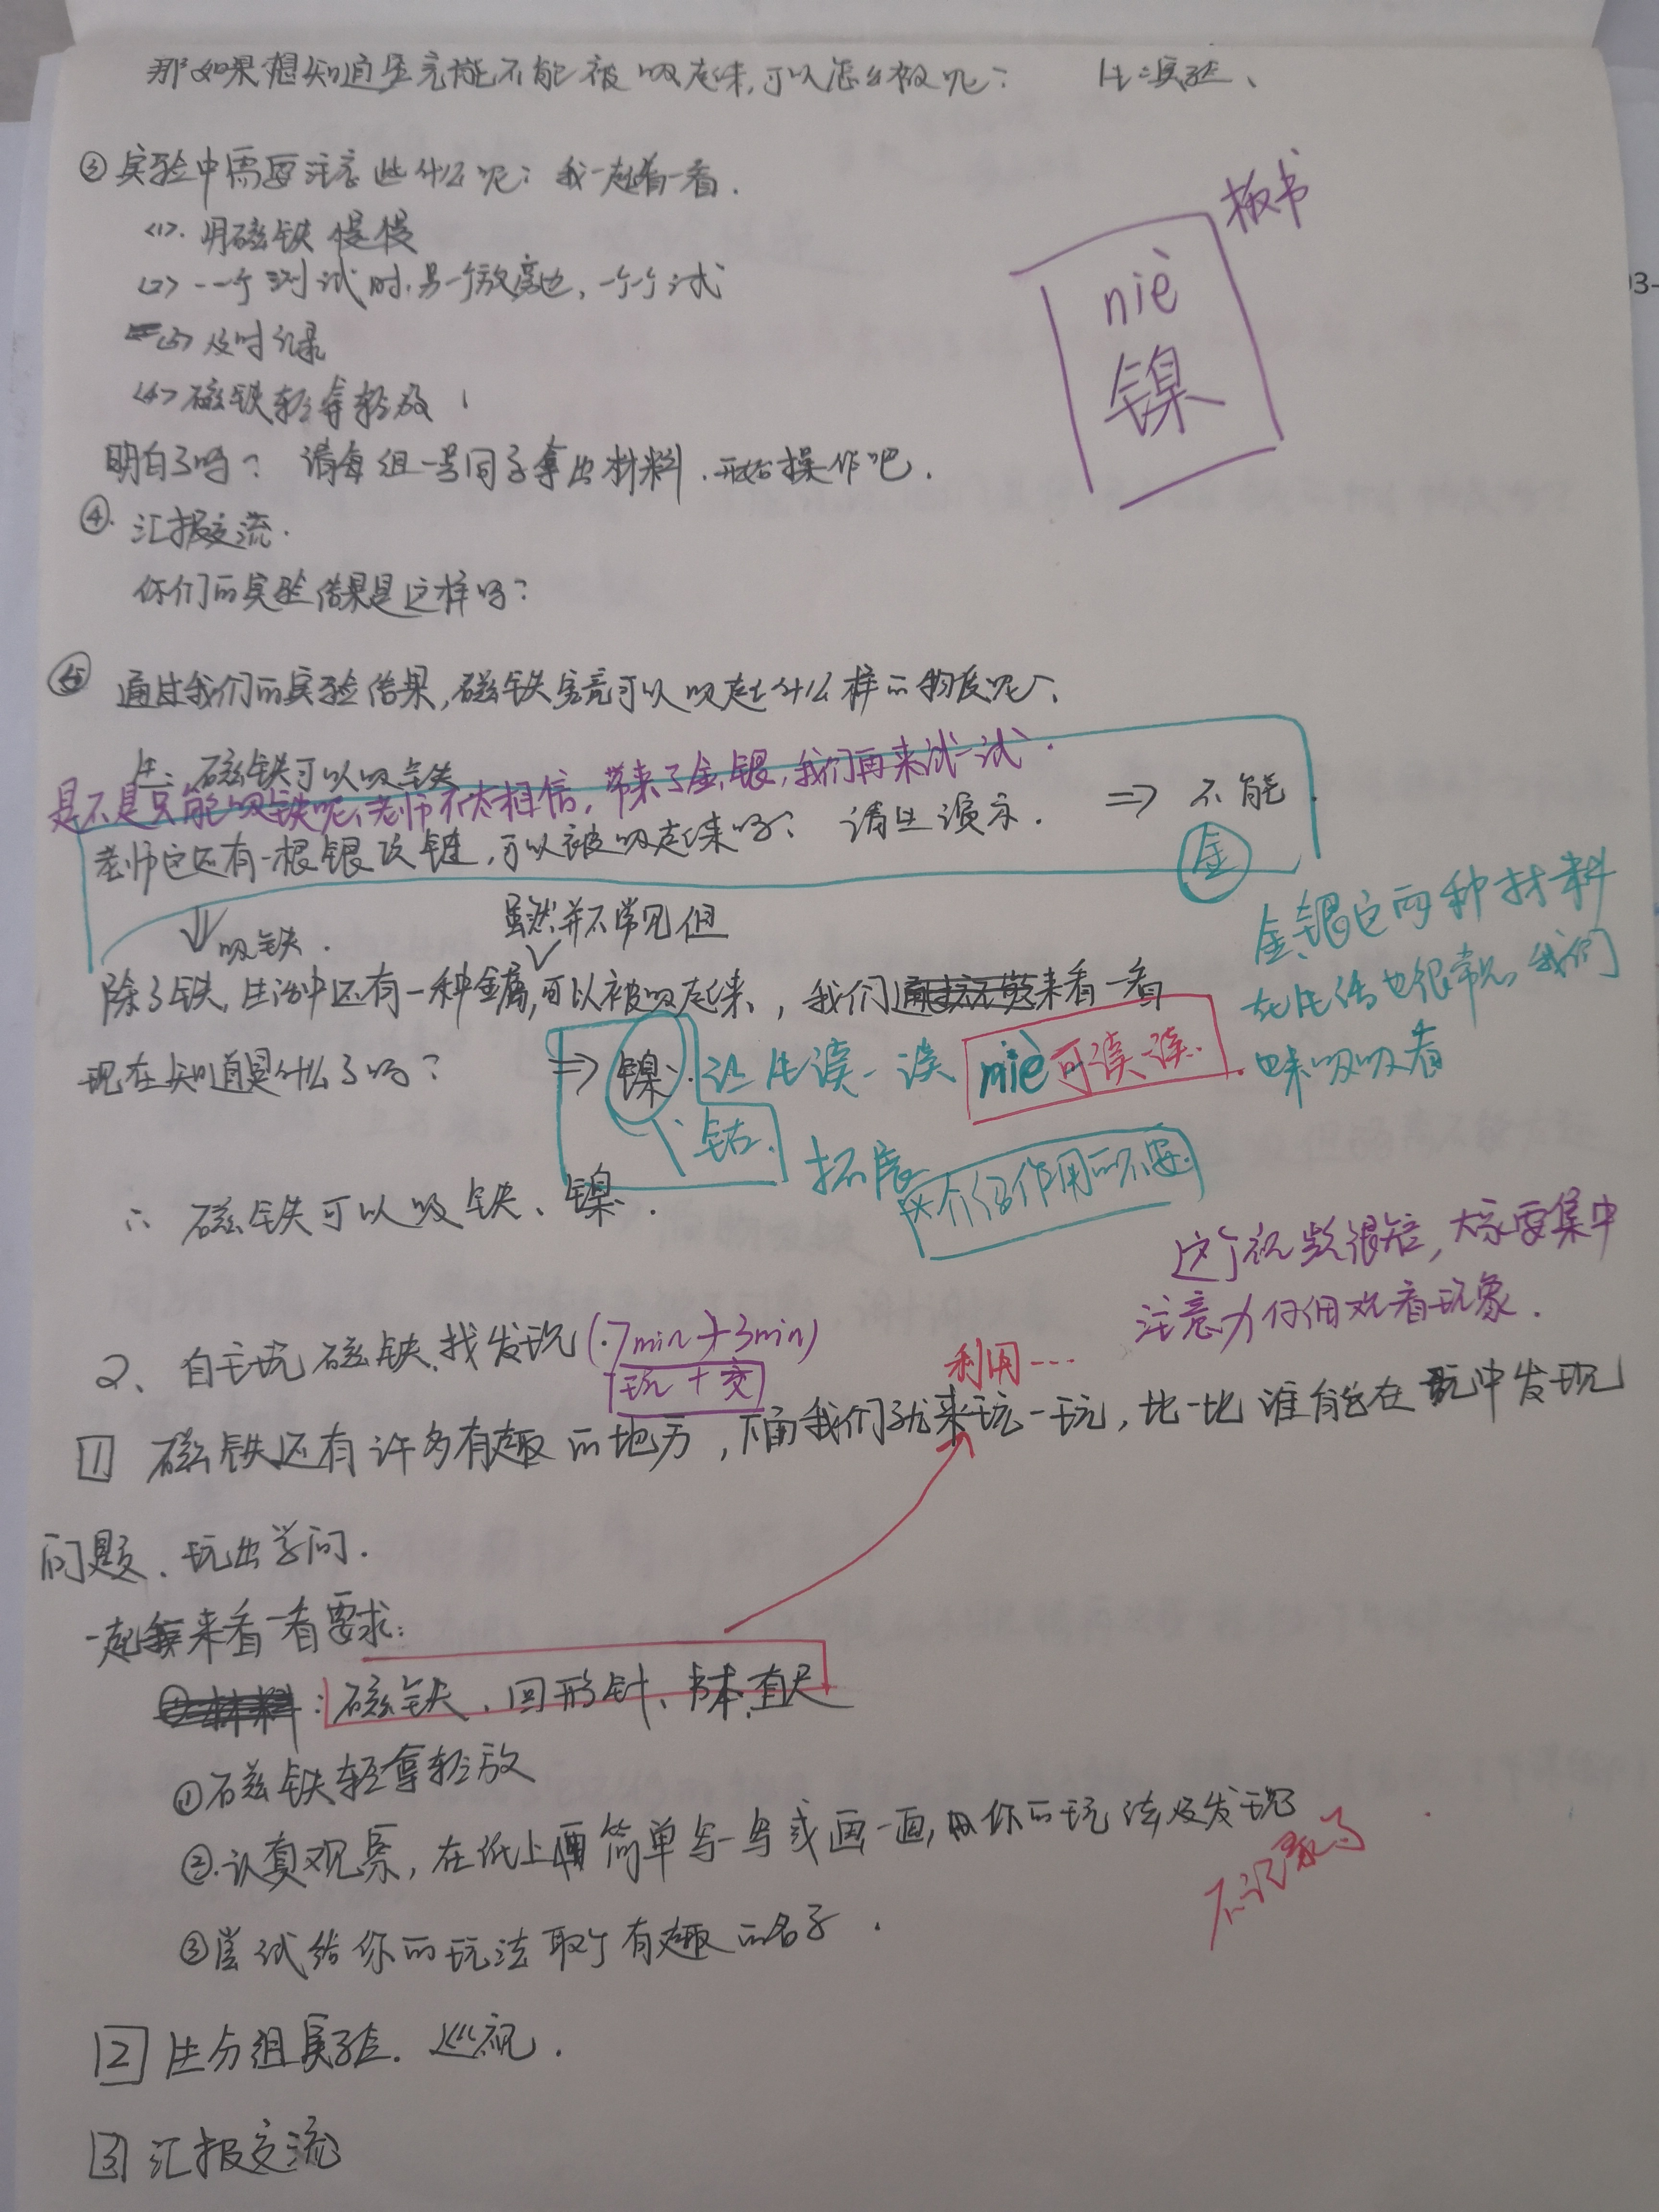 那如果想知道究竟能不能被吸起来,可以怎么做呢? 生:实验、
③实验中需要注意些什么呢?我一起看一看.
板书
niè
镍
<1>.用磁铁慢慢
<2>.一个测试时,另一个放旁边,一个个试
<3>及时记录
<4>磁铁轻拿轻放
明白了吗? 请每组一号同子拿出材料.开始操作吧.
④.汇报交流.
你们的实验结果是这样吗?
⑤ 通过我们的实验结果,磁铁竟可以吸起什么样的物质呢?
生:磁铁可以吸铁
是不是只能吸铁呢,老师不太相信,带来了金、银,我们再来试一试.
老师这还有一根银项链,可以被吸起来吗? 请生演示. => 不能.
金
吸铁.
虽然并不常见但
金、银这两种材料
在生活也很常见,我们
也来吸吸看
除了铁,生活中还有一种金属,可以被吸起来,我们来看一看
现在知道是什么了吗? => 镍.让生读一读 niè可读一读.
钴.
拓展
介绍作用的不要.
∴ 磁铁可以吸铁、镍.
这个视频很短,大家要集中
注意力仔细观看现象.
2、自主玩磁铁、找发现(.7min+3min)
玩+交
利用…
1 磁铁还有许多有趣的地方,下面我们就来玩一玩,比一比谁能在玩中发现
问题、玩出学问.
一起来看一看要求:
:磁铁、回形针、书本、直尺
①磁铁轻拿轻放
②.认真观察,在纸上简单写一写或画一画,你的玩法及发现
不记录了
③尝试给你的玩法取个有趣的名子.
2 生分组实验.巡视.
3 汇报交流